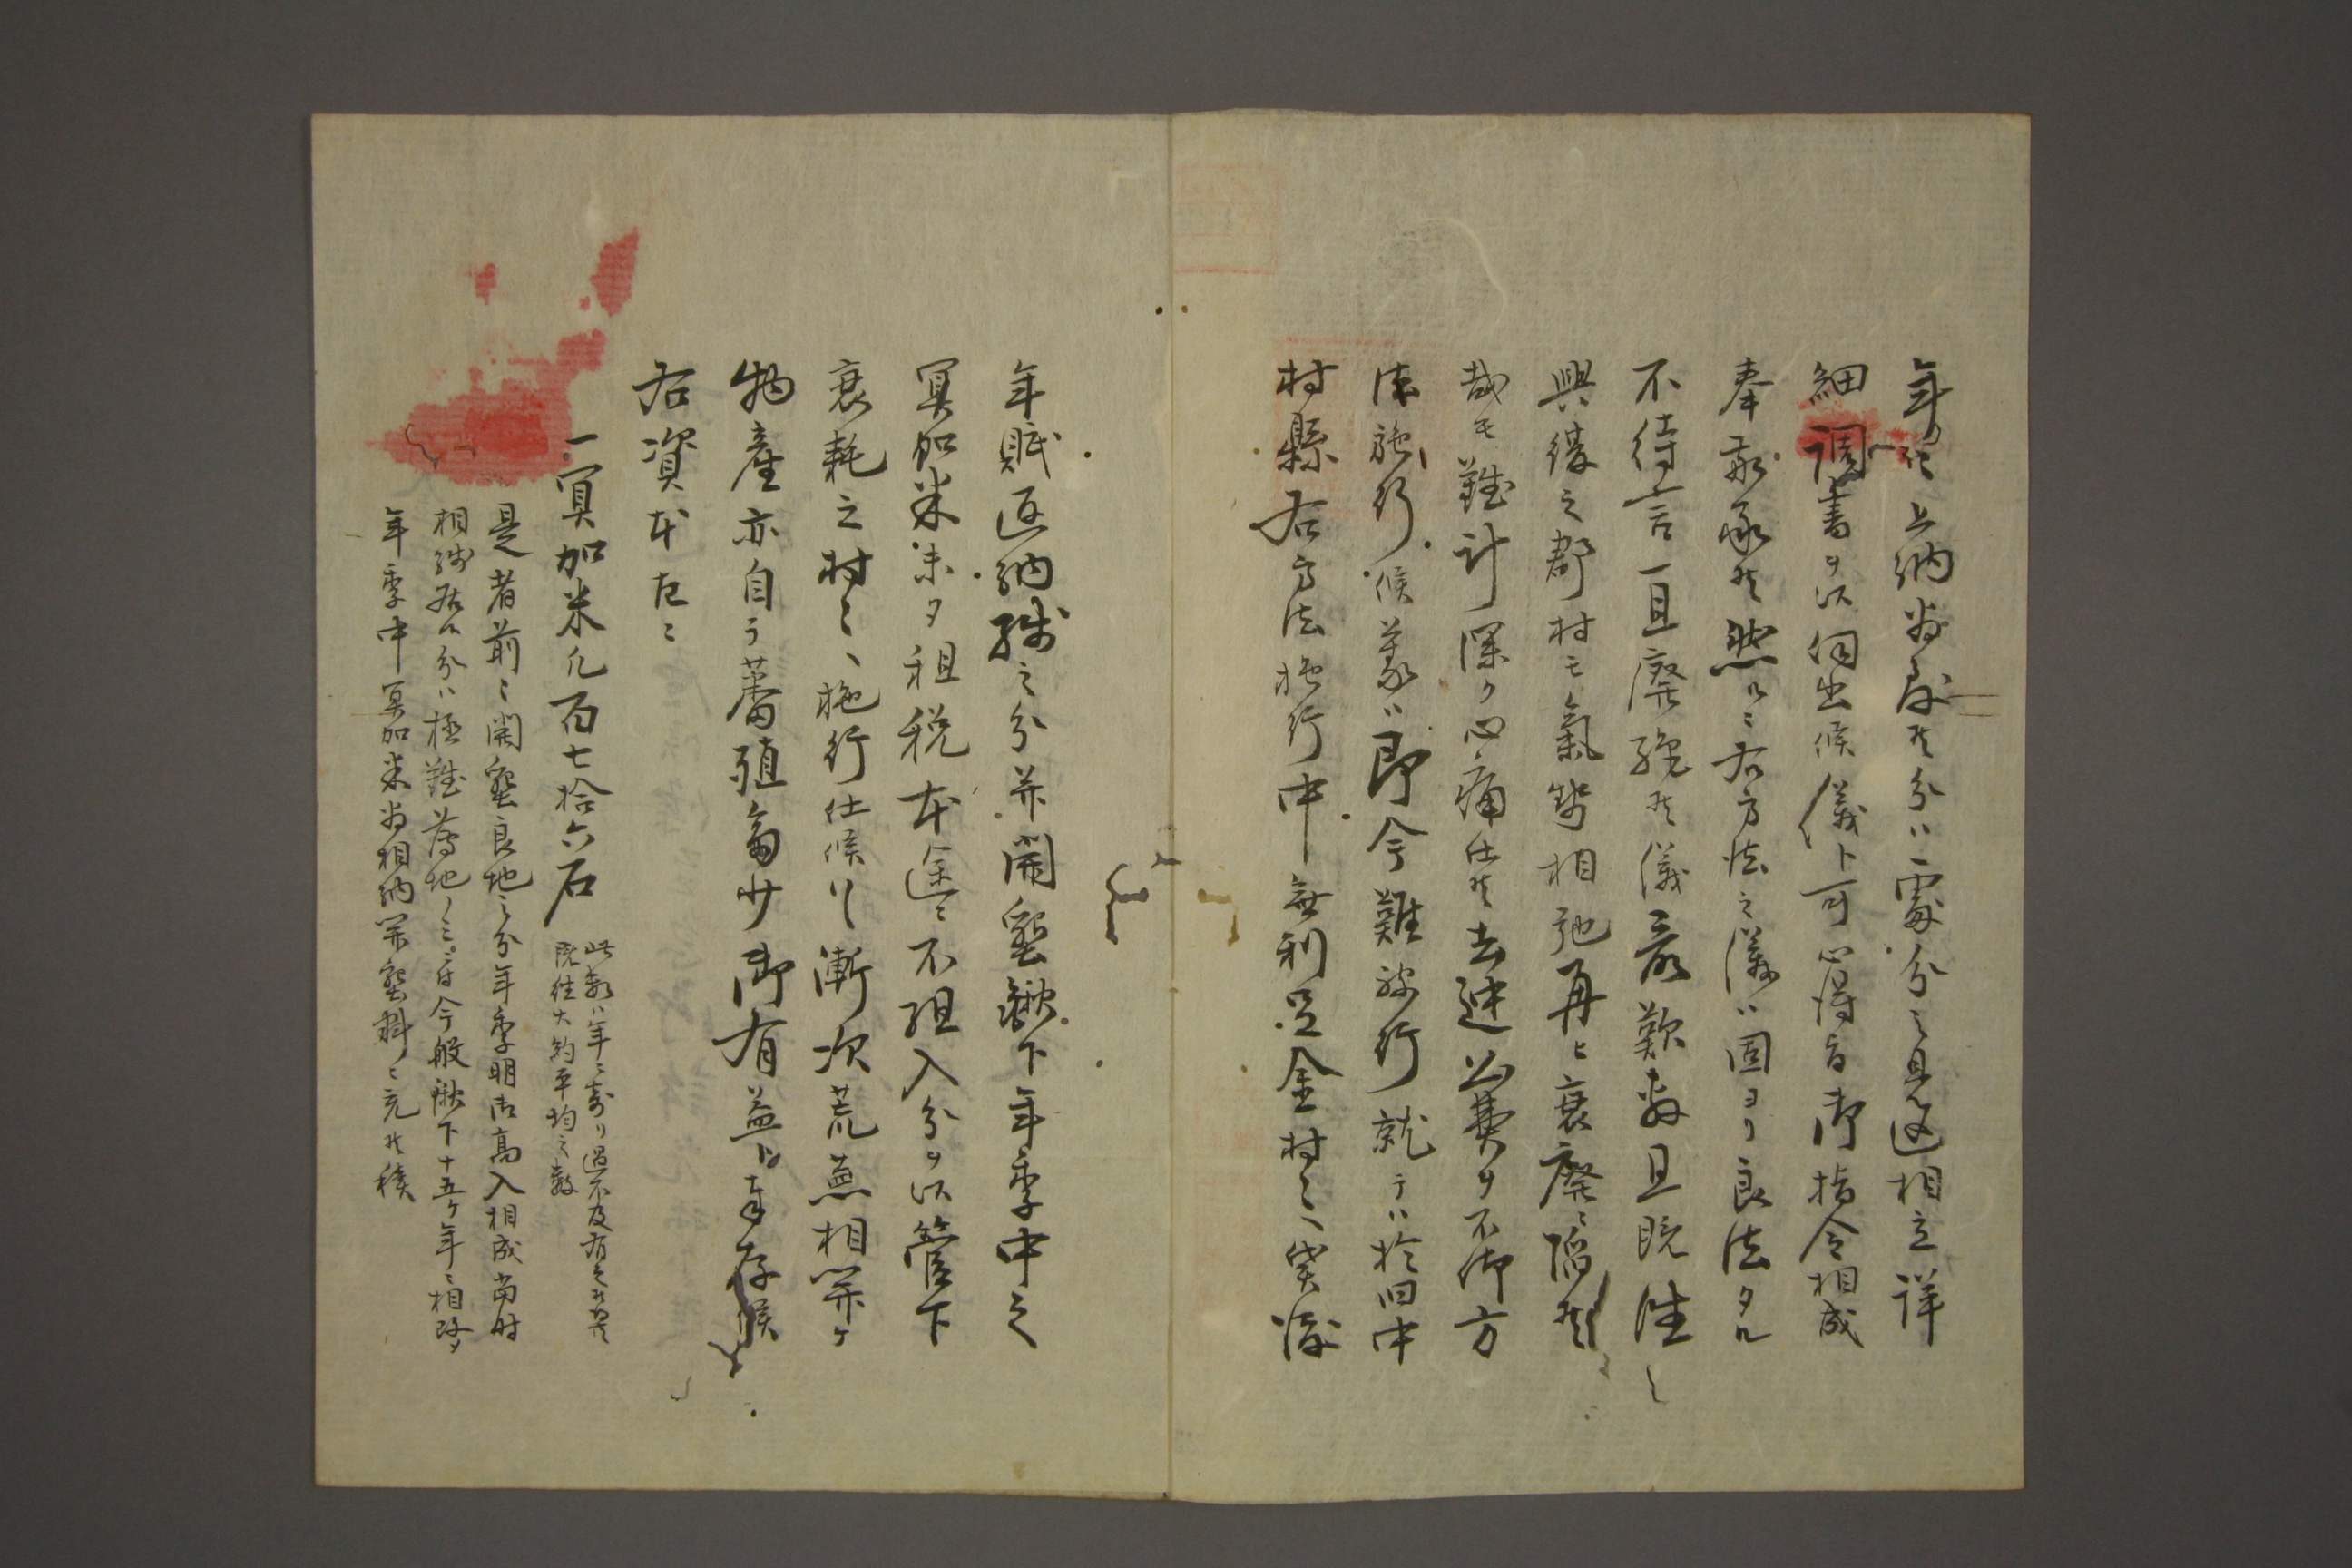 年々上納為致候分ハ處分之見込相立詳
細調書ヲ以伺出候儀ト可心得旨御指令相成
奉敬承候然ルニ右方法之儀ハ固ヨリ良法タル
不待言一旦廃絶候儀最歎敷且既往之
興復之郡村モ氣勢相弛再ヒ衰廃ニ陥候
哉モ難計深ク心痛仕候去迚公費ヲ不御方
法施行候義ハ即今難被行就テハ於旧中
村縣右方法施行中無利足金村々ヘ貸渡
年賦返納残之分并開墾鍬下年季中之
冥加米未タ租税本途ニ不組入分ヲ以管下
衰耗之村々ヘ施行仕候ハヽ漸次荒蕪相開ケ
物産亦自ラ蕃殖多少御有益ト奉存候
右資本左ニ
一冥加米凡百七拾六石
此数ハ年ニ寄リ過不及有之候得共
既往大約平均之数
是者前ニ開墾良地之分年季明本高入相成当時
相残居候分ハ極難薄地ノミニ付今般鍬下十五ケ年ニ相改メ
年季中冥加米為相納開墾料ニ充候積